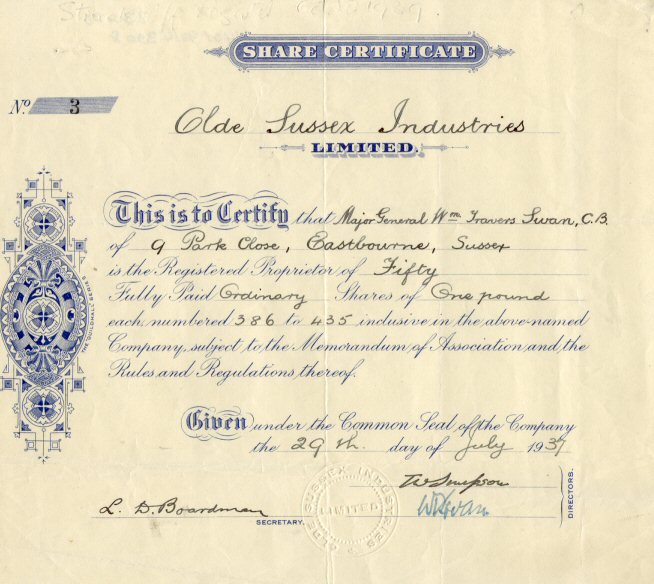 SHARE CERTIFICATE
No. 3
Olde Sussex Industries
LIMITED.
This is to Certify that Major General Wm. Travers Swan, C.B.
of 9 Park Close, Eastbourne, Sussex
is the Registered Proprietor of Fifty
Fully Paid Ordinary Shares of One pound
each, numbered 386 to 435 inclusive in the above-named
Company, subject to the Memorandum of Association and the
Rules and Regulations thereof.
Given under the Common Seal of the Company
the 29th. day of July 1937
W Simpson
W T Swan.
DIRECTORS.
L. D. Boardman
SECRETARY.
OLDE SUSSEX INDUSTRIES
LIMITED